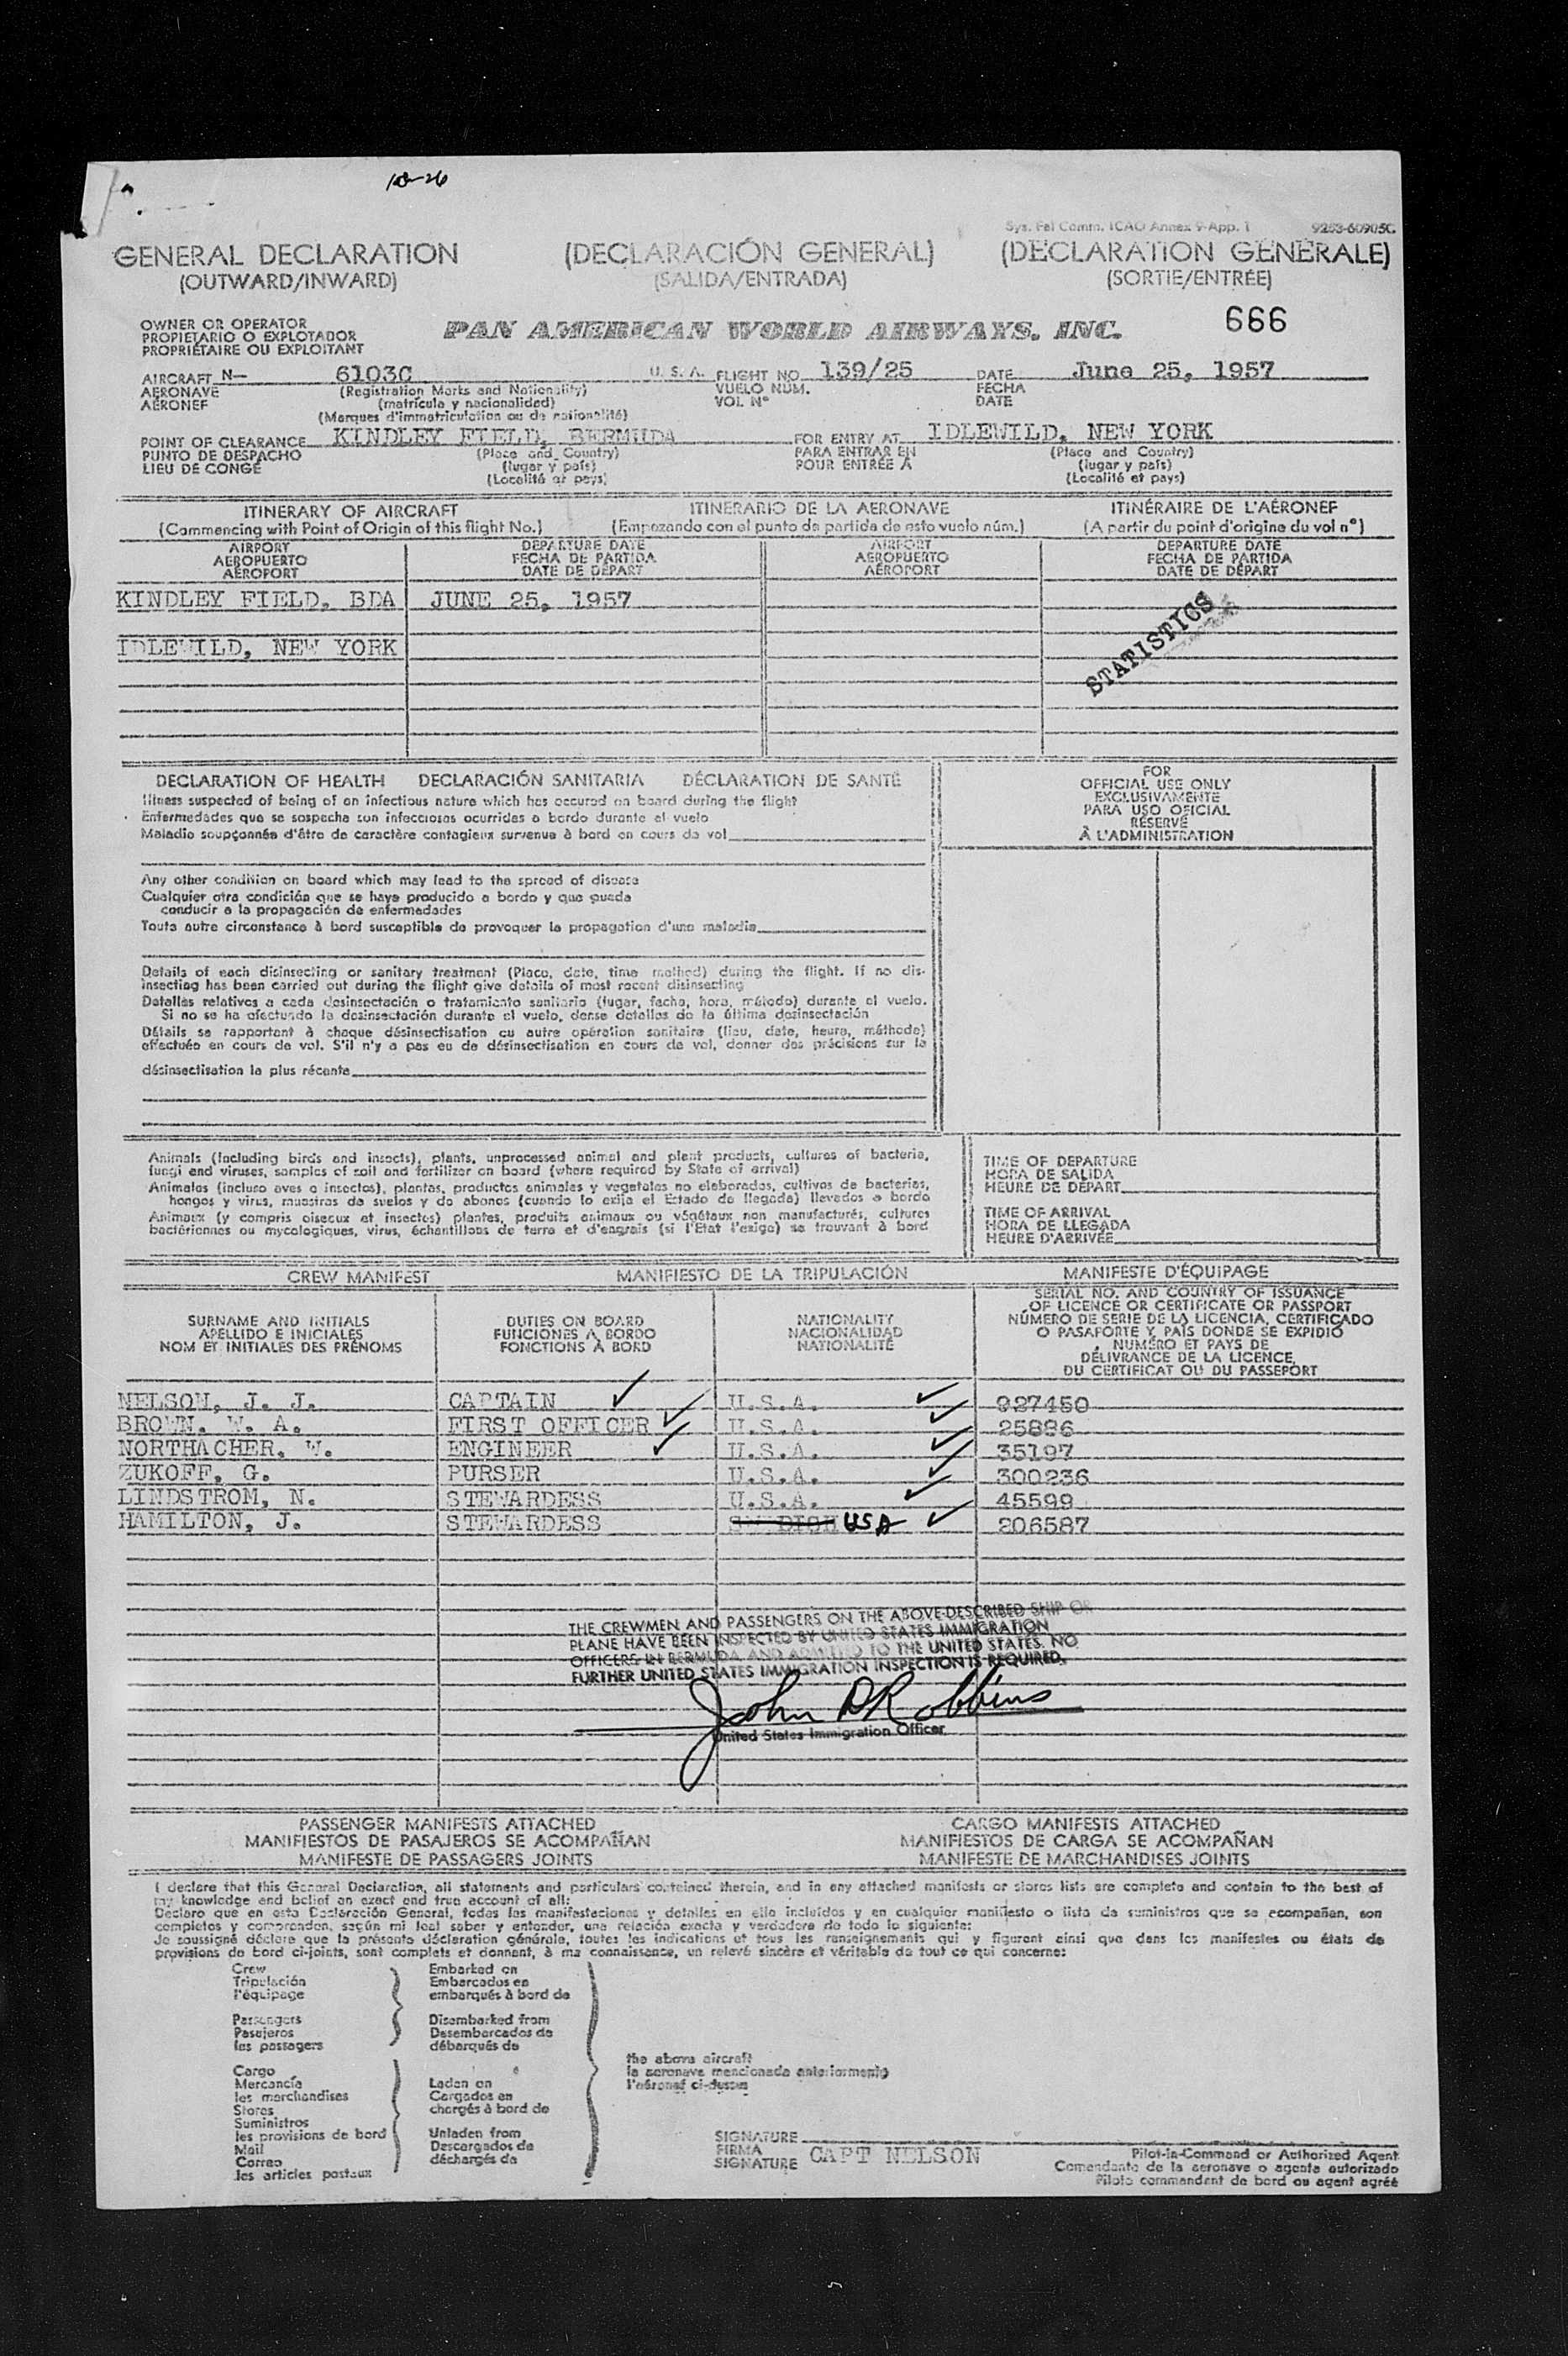 Sys. Fal Comm. ICAO Annex 9-App. 1 9253-60905C
GENERAL DECLARATION (DECLARACIÓN GENERAL) (DECLARATION GÉNÉRALE)
(OUTWARD/INWARD) (SALIDA/ENTRADA) (SORTIE/ENTRÉE)
OWNER OR OPERATOR
PROPIETARIO O EXPLOTADOR
PROPRIÉTAIRE OU EXPLOITANT
PAN AMERICAN WORLD AIRWAYS, INC. 666
AIRCRAFT N— 6103C U. S. A. FLIGHT NO 139/25 DATE June 25, 1957
AERONAVE (Registration Marks and Nationality) VUELO NÚM. FECHA
AÉRONEF (matrícula y nacionalidad) VOL Nº DATE
(Marques d'immatriculation ou de nationalité)
POINT OF CLEARANCE KINDLEY FIELD, BERMUDA FOR ENTRY AT IDLEWILD, NEW YORK
PUNTO DE DESPACHO (Place and Country) PARA ENTRAR EN (Place and Country)
LIEU DE CONGÉ (lugar y país) POUR ENTRÉE À (lugar y país)
(Localité et pays) (Localité et pays)
ITINERARY OF AIRCRAFT ITINERARIO DE LA AERONAVE ITINÉRAIRE DE L'AÉRONEF
(Commencing with Point of Origin of this flight No.) (Empezando con el punto de partida de esto vuelo núm.) (A partir du point d'origine du vol nº)
AIRPORT DEPARTURE DATE AIRPORT DEPARTURE DATE
AEROPUERTO FECHA DE PARTIDA AEROPUERTO FECHA DE PARTIDA
AÉROPORT DATE DE DÉPART AÉROPORT DATE DE DÉPART
KINDLEY FIELD, BDA JUNE 25, 1957
IDLEWILD, NEW YORK
STATISTICS
DECLARATION OF HEALTH DECLARACIÓN SANITARIA DÉCLARATION DE SANTÉ
Illness suspected of being of an infectious nature which has occured on board during the flight
Enfermedades que se sospecha son infecciosas ocurridas a bordo durante el vuelo
Maladie soupçonnée d'être de caractère contagieux survenue à bord en cours de vol
FOR
OFFICIAL USE ONLY
EXCLUSIVAMENTE
PARA USO OFICIAL
RÉSERVÉ
À L'ADMINISTRATION
Any other condition on board which may lead to the spread of disease
Cualquier otra condición que se haya producido a bordo y que pueda
conducir a la propagación de enfermedades
Toute autre circonstance à bord susceptible de provoquer la propagation d'une maladie
Details of each disinsecting or sanitary treatment (Place, date, time method) during the flight. If no dis-
insecting has been carried out during the flight give details of most recent disinsecting
Detalles relativos a cada desinsectación o tratamiento sanitario (lugar, fecha, hora, método) durante el vuelo.
Si no se ha efectuado la desinsectación durante el vuelo, dense detalles de la última desinsectación
Détails se rapportant à chaque désinsectisation ou autre opération sanitaire (lieu, date, heure, méthode)
effectuée en cours de vol. S'il n'y a pas eu de désinsectisation en cours de vol, donner des précisions sur la
désinsectisation la plus récente
Animals (including birds and insects), plants, unprocessed animal and plant products, cultures of bacteria,
fungi and viruses, samples of soil and fertilizer on board (where required by State of arrival)
Animales (incluso aves o insectos), plantas, productos animales y vegetales no elaborados, cultivos de bacterias,
hongos y virus, muestras de suelos y de abonos (cuando lo exija el Estado de llegada) llevados a bordo
Animaux (y compris oiseaux et insectes) plantes, produits animaux ou végétaux non manufacturés, cultures
bactériennes ou mycologiques, virus, échantillons de terre et d'engrais (si l'Etat l'exige) se trouvant à bord
TIME OF DEPARTURE
HORA DE SALIDA
HEURE DE DÉPART
TIME OF ARRIVAL
HORA DE LLEGADA
HEURE D'ARRIVÉE
CREW MANIFEST MANIFIESTO DE LA TRIPULACIÓN MANIFESTE D'ÉQUIPAGE
SURNAME AND INITIALS
APELLIDO E INICIALES
NOM ET INITIALES DES PRÉNOMS
DUTIES ON BOARD
FUNCIONES A BORDO
FONCTIONS À BORD
NATIONALITY
NACIONALIDAD
NATIONALITÉ
SERIAL NO. AND COUNTRY OF ISSUANCE
OF LICENCE OR CERTIFICATE OR PASSPORT
NÚMERO DE SERIE DE LA LICENCIA, CERTIFICADO
O PASAPORTE Y PAÍS DONDE SE EXPIDIÓ
NUMÉRO ET PAYS DE
DÉLIVRANCE DE LA LICENCE,
DU CERTIFICAT OU DU PASSEPORT
NELSON, J. J. CAPTAIN ✓ U.S.A. ✓ 927450
BROWN, W. A. FIRST OFFICER ✓ U.S.A. ✓ 25886
NORTHACHER, W. ENGINEER ✓ U.S.A. ✓ 35197
ZUKOFF, G. PURSER U.S.A. ✓ 300236
LINDSTROM, N. STEWARDESS U.S.A. ✓ 45599
HAMILTON, J. STEWARDESS USA ✓ 206587
THE CREWMEN AND PASSENGERS ON THE ABOVE-DESCRIBED SHIP OR
PLANE HAVE BEEN INSPECTED BY UNITED STATES IMMIGRATION
OFFICERS IN BERMUDA AND ADMITTED TO THE UNITED STATES. NO
FURTHER UNITED STATES IMMIGRATION INSPECTION IS REQUIRED.
John D Robbins
United States Immigration Officer
PASSENGER MANIFESTS ATTACHED CARGO MANIFESTS ATTACHED
MANIFIESTOS DE PASAJEROS SE ACOMPAÑAN MANIFIESTOS DE CARGA SE ACOMPAÑAN
MANIFESTE DE PASSAGERS JOINTS MANIFESTE DE MARCHANDISES JOINTS
I declare that this General Declaration, all statements and particulars contained therein, and in any attached manifests or stores lists are complete and contain to the best of
my knowledge and belief an exact and true account of all:
Declaro que en esta Declaración General, todas las manifestaciones y detalles en ella incluidos y en cualquier manifiesto o lista de suministros que se acompañan, son
completos y comprenden, según mi leal saber y entender, una relación exacta y verdadera de todo lo siguiente:
Je soussigné déclare que la présente déclaration générale, toutes les indications et tous les renseignements qui y figurent ainsi que dans les manifestes ou états de
provisions de bord ci-joints, sont complets et donnent, à ma connaissance, un relevé sincère et véritable de tout ce qui concerne:
Crew Embarked on
Tripulación Embarcados en
l'équipage embarqués à bord de
Passengers Disembarked from
Pasajeros Desembarcados de
les passagers débarqués de
the above aircraft
la aeronave mencionada anteriormente
l'aéronef ci-dessus
Cargo
Mercancía Laden on
les marchandises Cargados en
Stores chargés à bord de
Suministros
les provisions de bord Unladen from
Mail Descargados de
Correo déchargés de
les articles postaux
SIGNATURE
FIRMA
SIGNATURE CAPT NELSON
Pilot-in-Command or Authorized Agent
Comandante de la aeronave o agente autorizado
Pilote commandant de bord ou agent agréé